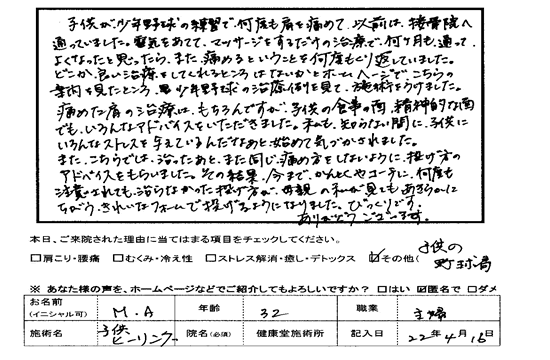 子供が少年野球の練習で、何度も肩を痛めて、以前は、接骨院へ
通っていました。電気をあてて、マッサージをするだけの治療で、何ヶ月も、通って、
よくなったと思ったら、また、痛めるということを何度もくり返していました。
どこか、良い治療をしてくれるところはないかとホームページで、こちらの
案内を見たところ、少年野球の治療例を見て、施術をうけました。
痛めた肩の治療は、もちろんですが、子供の食事の面、精神的な面
でも、いろんなアドバイスをいただきました。私も、知らない間に、子供に
いろんなストレスを与えているんだなあと始めて気づかされました。
また、こちらでは、治ったあと、また同じ痛め方をしないように、投げ方の
アドバイスをもらいました。その結果、今まで、かんとくやコーチに、何度も
注意されても、治らなかった投げ方が、母親の私が見てもあきらかに
ちがう、きれいなフォームで投げるようになりました。びっくりです。
ありがとうございます。
本日、ご来院された理由に当てはまる項目をチェックしてください。
□肩こり・腰痛 □むくみ・冷え性 □ストレス解消・癒し・デトックス ☑その他(子供の野球肩
※ あなた様の声を、ホームページなどでご紹介してもよろしいですか？ □はい ☑匿名で □ダメ
お名前(イニシャル可) M.A 年齢 32 職業 主婦
施術名 子供ヒーリング 院名(必須) 健康堂施術所 記入日 22年4月16日